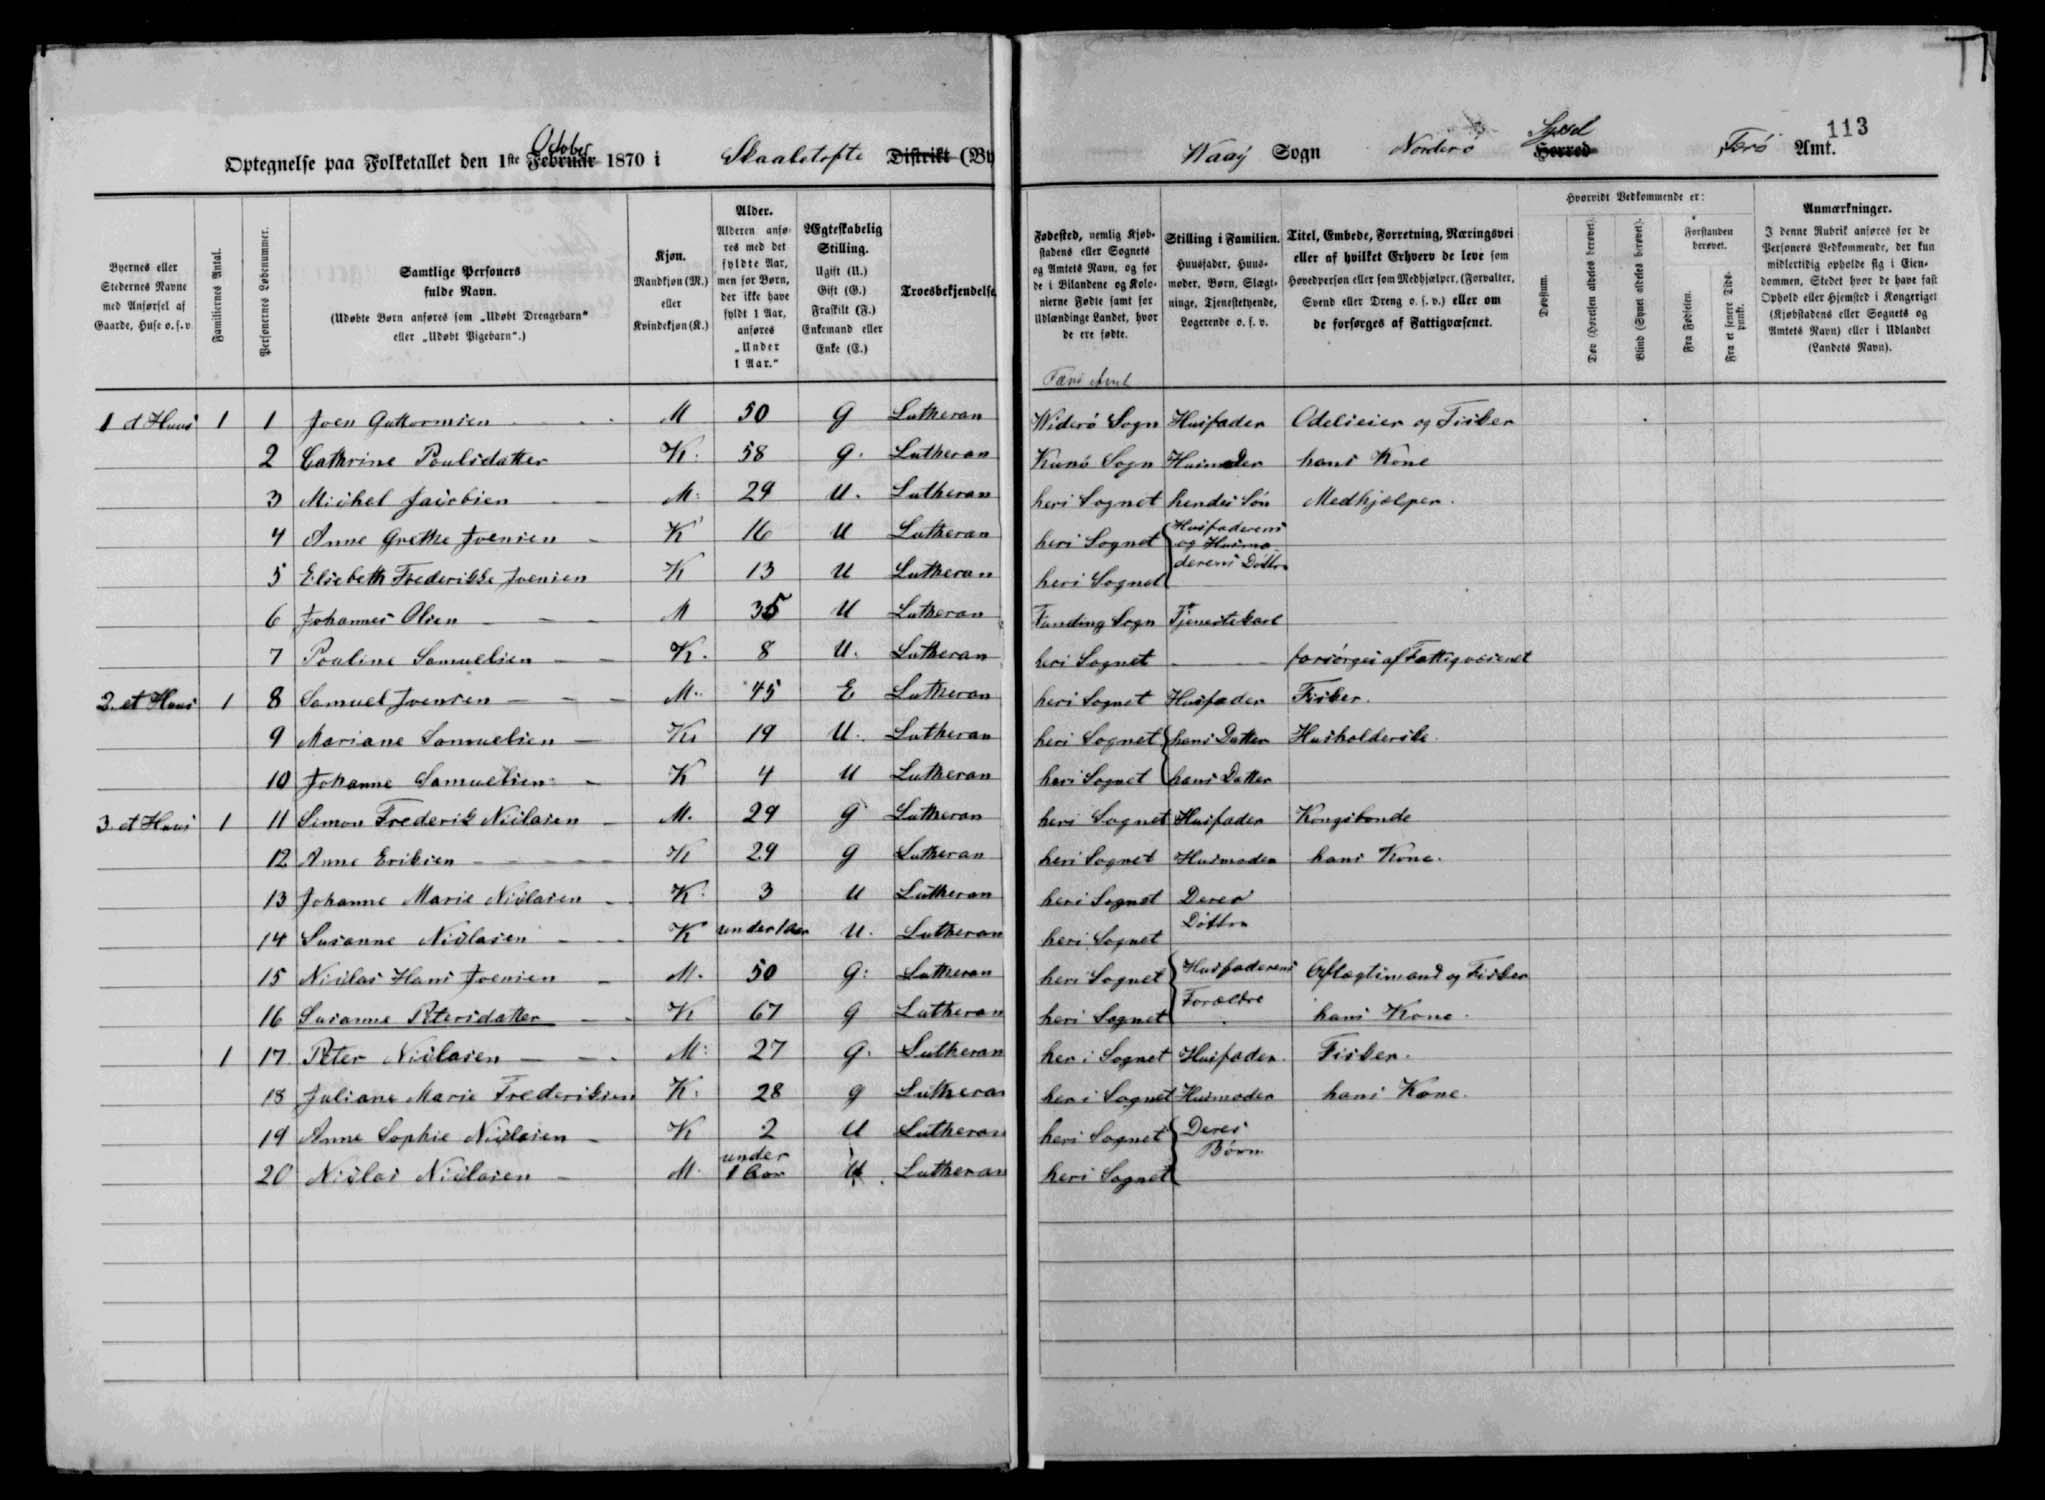 113
October
Syssel
Optegnelse paa Folketallet den 1ste Februar 1870 i Skaaletofte Distrikt (By Waaÿ Sogn Norderø Herred Færø Amt.
Byernes eller Stedernes Navne med Anførsel af Gaarde, Huse o.s.v.
Familiernes Antal.
Personernes Løbenummer.
Samtlige Personers fulde Navn.
(Udøbte Børn anføres som „Udøbt Drengebarn“ eller „Udøbt Pigebarn“.)
Kjøn.
Mandkjøn (M.) eller Kvindekjøn (K.)
Alder.
Alderen anføres med det fyldte Aar, men for Børn, der ikke have fyldt 1 Aar, anføres „Under 1 Aar.“
Ægteskabelig Stilling.
Ugift (U.) Gift (G.) Fraskilt (F.) Enkemand eller Enke (E.)
Troesbekjendelse
Fødested, nemlig Kjøbstadens eller Sognets og Amtets Navn, og for de i Bilandene og Kolonierne Fødte samt for Udlændinge Landet, hvor de ere fødte.
Stilling i Familien.
Huusfader, Huusmoder, Børn, Slægtninge, Tjenestetyende, Logerende o. s. v.
Titel, Embede, Forretning, Næringsvei eller af hvilket Erhverv de leve som Hovedperson eller som Medhjælper, (Forvalter, Svend eller Dreng o. s. v.) eller om de forsørges af Fattigvæsenet.
Hvorvidt Vedkommende er:
Døvstum.
Døv (Hørelsen aldeles berøvet).
Blind (Synet aldeles berøvet).
Forstanden berøvet.
Fra Fødselen.
Fra et senere Tidspunkt.
Anmærkninger.
I denne Rubrik anføres for de Personers Vedkommende, der kun midlertidig opholde sig i Eiendommen, Stedet hvor de have fast Ophold eller Hjemsted i Kongeriget (Kjøbstadens eller Sognets og Amtets Navn) eller i Udlandet (Landets Navn).
Færø Amt
1 et Huus 1 1 Joen Guttormsen M 50 G Lutheran Widerø Sogn Husfader Odelseier og Fisker
2 Cathrine Poulsdatter K. 58 G. Lutheran Kunø Sogn Husmoder hans Kone
3 Michel Jacobsen M. 29 U. Lutheran heri Sognet hendes Søn Medhjælper.
4 Anne Grethe Joensen K 16 U Lutheran heri Sognet Husfaderens og Husmo-
5 Elsebeth Frederikke Joensen K 13 U Lutheran heri Sognet derens Døttre
6 Johannes Olsen M 35 U Lutheran Funding Sogn Tjenestekarl
7 Pouline Samuelsen K. 8 U. Lutheran heri Sognet forsørges af Fattigvæsenet
2. et Huus 1 8 Samuel Joensen M. 45 E Lutheran heri Sognet Husfader Fisker.
9 Mariane Samuelsen K. 19 U. Lutheran heri Sognet hans Datter Husholderske.
10 Johanne Samuelsen K 4 U Lutheran heri Sognet hans Datter
3. et Huus 1 11 Simon Frederik Niclasen M. 29 g Lutheran heri Sognet Husfader Kongsbonde
12 Anne Eriksen K 29 g Lutheran heri Sognet Husmoder hans Kone.
13 Johanne Marie Niclasen K. 3 U Lutheran heri Sognet Deres
14 Susanne Niclasen K under 1 Aar U. Lutheran heri Sognet Døttre
15 Niclas Hans Joensen M. 50 G: Lutheran heri Sognet Husfaderens Aflægtsmand og Fisker
16 Susanne Petersdatter K 67 g Lutheran heri Sognet Forældre hans Kone.
1 17 Peter Niclasen M. 27 G. Lutheran heri Sognet Husfader. Fisker.
18 Juliane Marie Frederiksen K. 28 g Lutheran heri Sognet Husmoder hans Kone.
19 Anne Sophie Niclasen K 2 U Lutheran heri Sognet Deres
20 Niclas Niclasen M. under 1 Aar U. Lutheran heri Sognet Børn